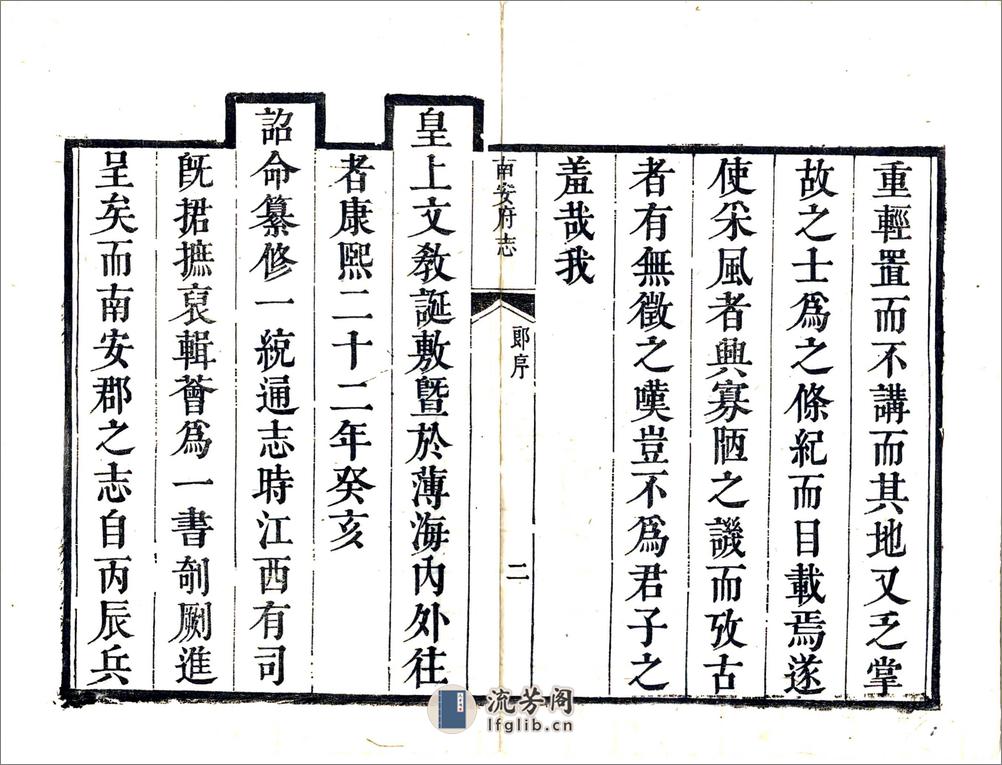 重輕置而不講而其地又乏掌
故之士爲之條紀而目載焉遂
使采風者興寡陋之譏而攷古
者有無徵之嘆豈不爲君子之
羞哉我
南安府志
郎序
二
皇上文敎誕敷曁於薄海內外往
者康熙二十二年癸亥
詔命纂修一統通志時江西有司
旣捃摭裒輯薈爲一書剞劂進
呈矣而南安郡之志自丙辰兵
流芳阁
lfglib.cn